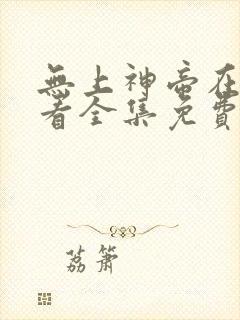 無上神帝在
看全集免費
荔簫